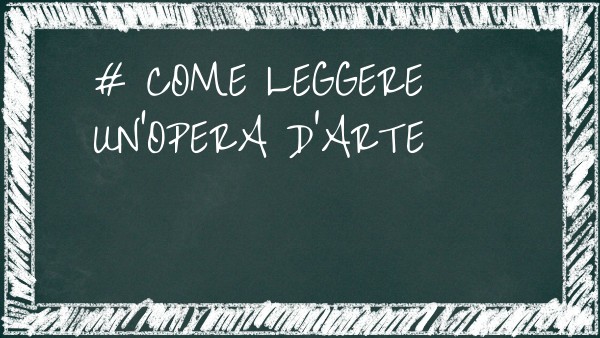 # COME LEGGERE
UN'OPERA D'ARTE